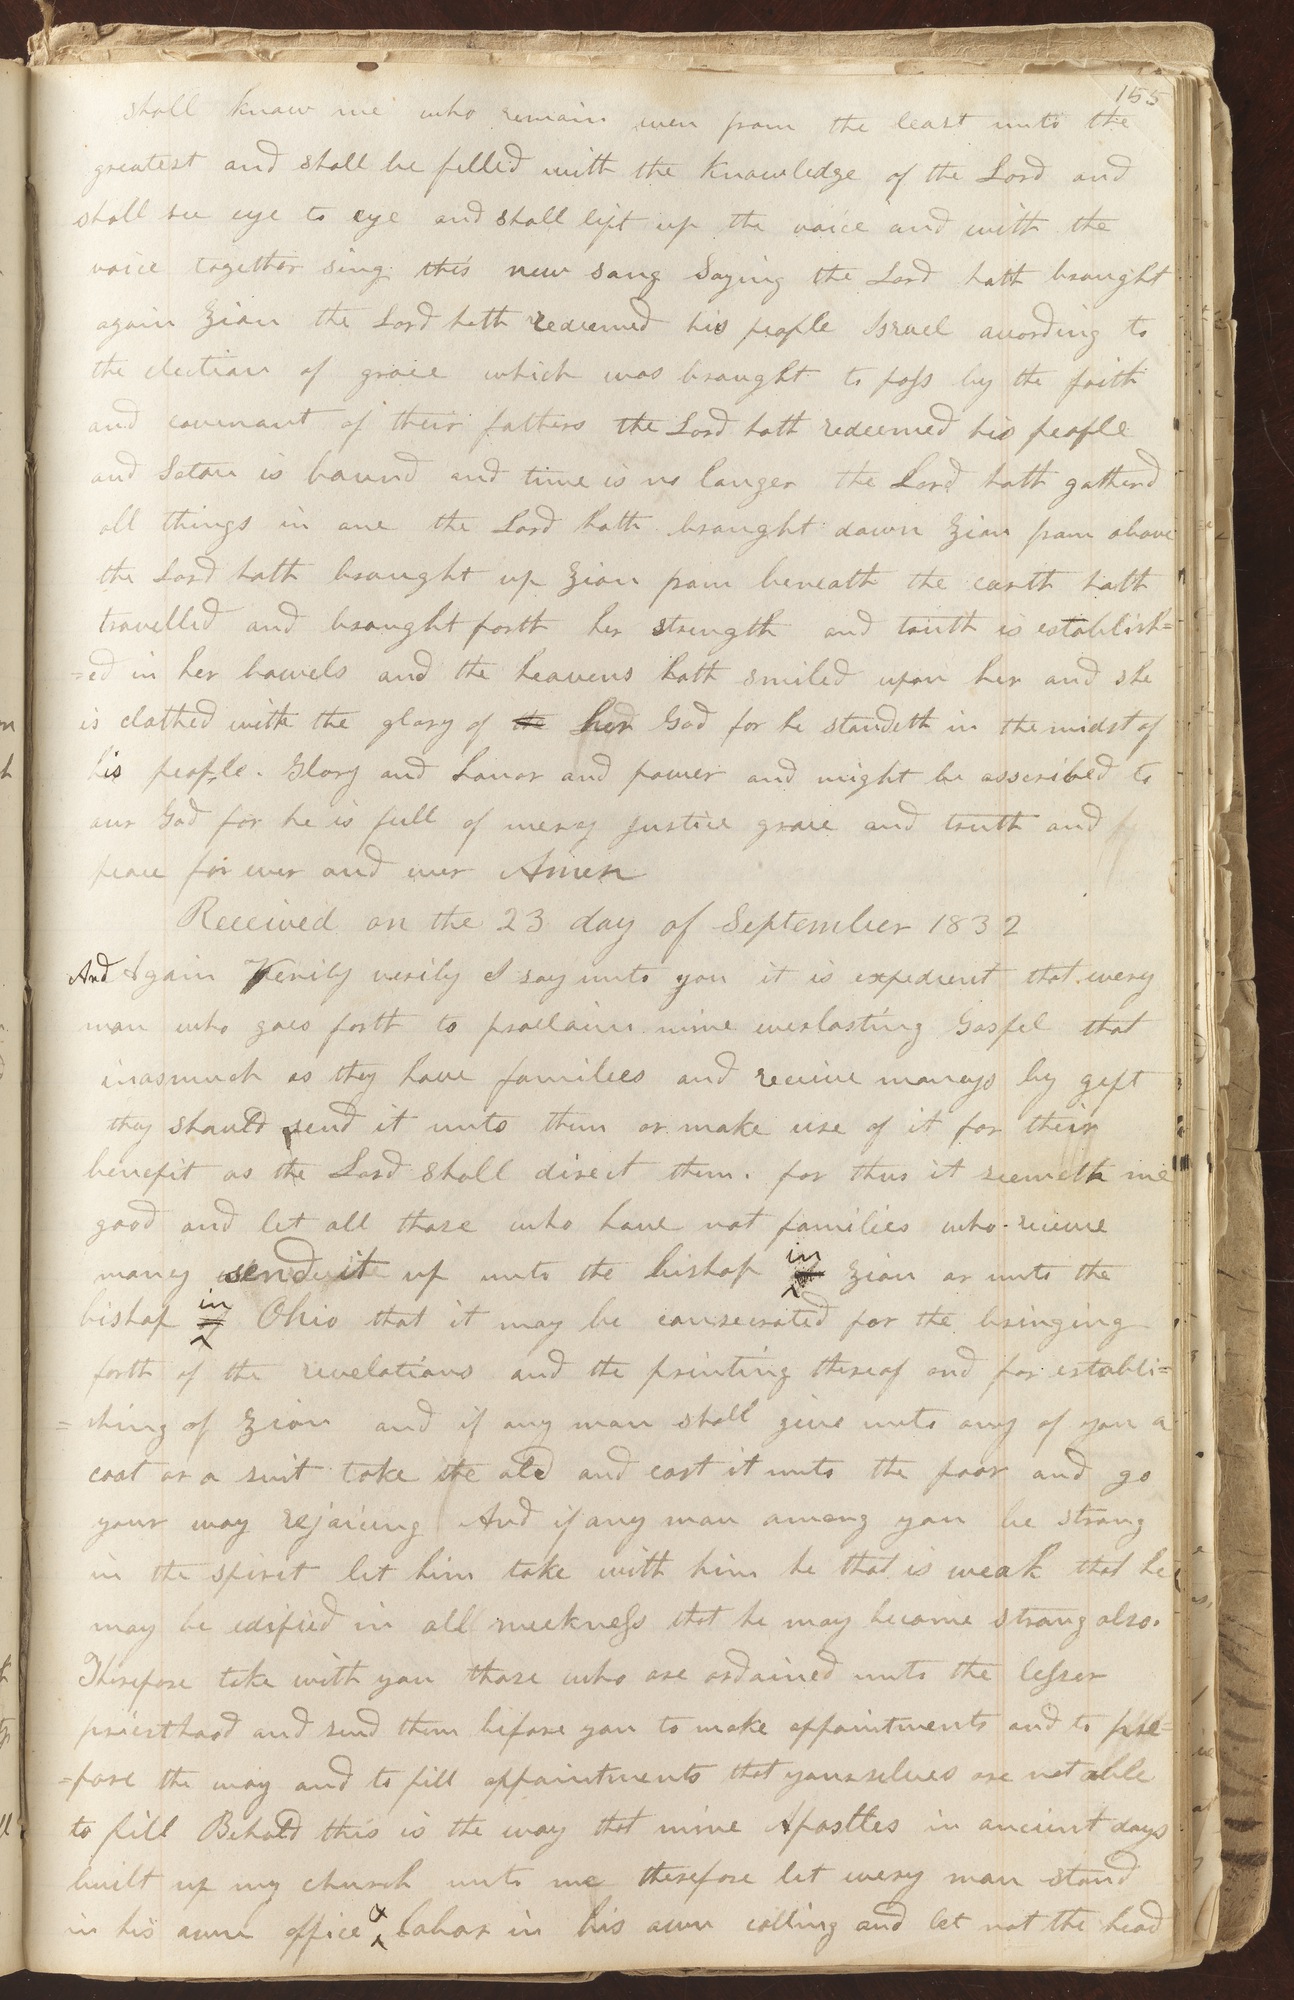 155
shall know me who remain even from the least unto the
greatest and shall be filled with the knowledge of the Lord and
shall see eye to eye and shall lift up the voice and with the
voice together sing this new song Saying the Lord hath brought
again Zion the Lord hath redeemed his people Israel acording to
the election of grace which was brought to pass by the faith
and covenant of their fathers the Lord hath redeemed his people
and Satan is bound and time is no longer the Lord hath gatherd
all things in one the Lord hath brought down Zion from above
the Lord hath brought up Zion from beneath the earth hath
travelled and brought forth her strength and truth is establish=
=ed in her bowels and the heavens hath smiled upon her and she
is clothed with the glory of the her God for he standeth in the midst of
his people. Glory and honor and power and might be asscribed to
our God for he is full of mercy justice grace and truth and
peace for ever and ever Amen
Received on the 23 day of September 1832
And Again Verily verily I say unto you it is expedient that every
man who goes forth to proclaim mine everlasting Gospel that
inasmuch as they have families and receive moneys by gift
they should send it unto them or make use of it for their
benefit as the Lord shall direct them. for thus it seemeth me
good and let all those who have not families who receive
money send it up unto the bishop in Zion or unto the
bishop in Ohio that it may be consecrated for the bringing
forth of the revelations and the printing thereof and for establi=
=shing of Zion and if any man shall give unto any of you a
coat or a suit take the old and cast it unto the poor and go
your way rejoicing And if any man among you be strong
in the spirit let him take with him he that is weak that he
may be edified in all meekness that he may become strong also.
Therefore take with you those who are ordained unto the lesser
priesthood and send them before you to make appointments and to pre=
=pare the way and to fill appointments that yourselves are not able
to fill Behold this is the way that mine Apostles in ancient days
built up my church unto me therefore let every man stand
in his own office & labor in his own calling and let not the head